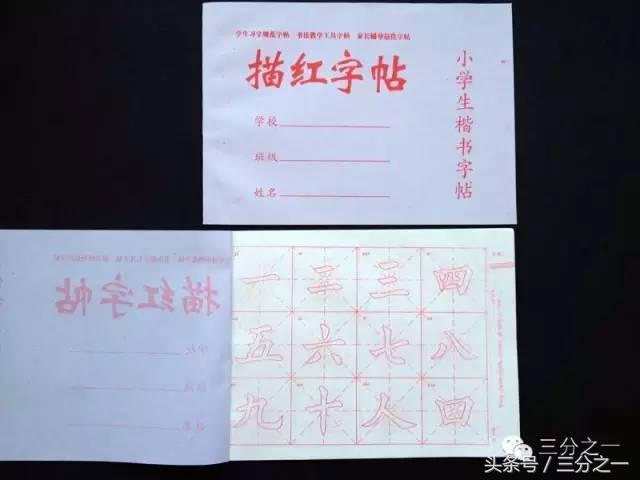 学生习字规范字帖 书法教学工具字帖 家长辅导最佳字帖
描红字帖
小学生楷书字帖
学校
班级
姓名
描红字帖
一二三四
五六七八
九十人四
三分之一
头条号／三分之一